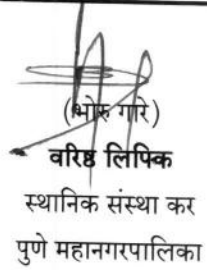 (भोरु गारे)
वरिष्ठ लिपिक
स्थानिक संस्था कर
पुणे महानगरपालिका